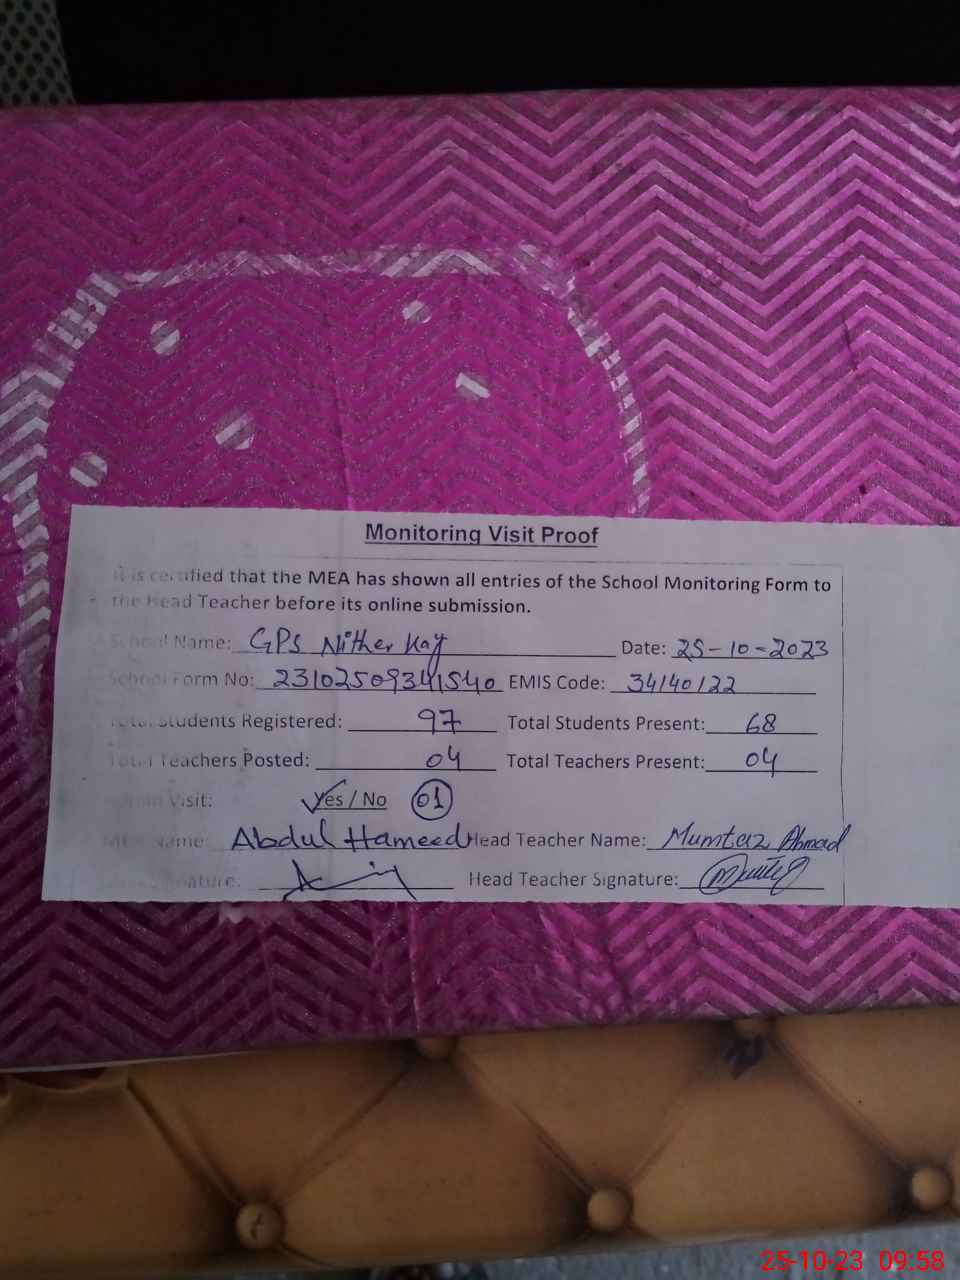 Monitoring Visit Proof
It is certified that the MEA has shown all entries of the School Monitoring Form to
the Head Teacher before its online submission.
School Name: GPS Nither Kay Date: 25-10-2023
School Form No: 23102509341540 EMIS Code: 34140122
Total Students Registered: 97 Total Students Present: 68
Total Teachers Posted: 04 Total Teachers Present: 04
Admin Visit: Yes / No 01
MEA Name: Abdul Hameed Head Teacher Name: Mumtaz Ahmad
Signature: Head Teacher Signature:
25-10-23 09:58